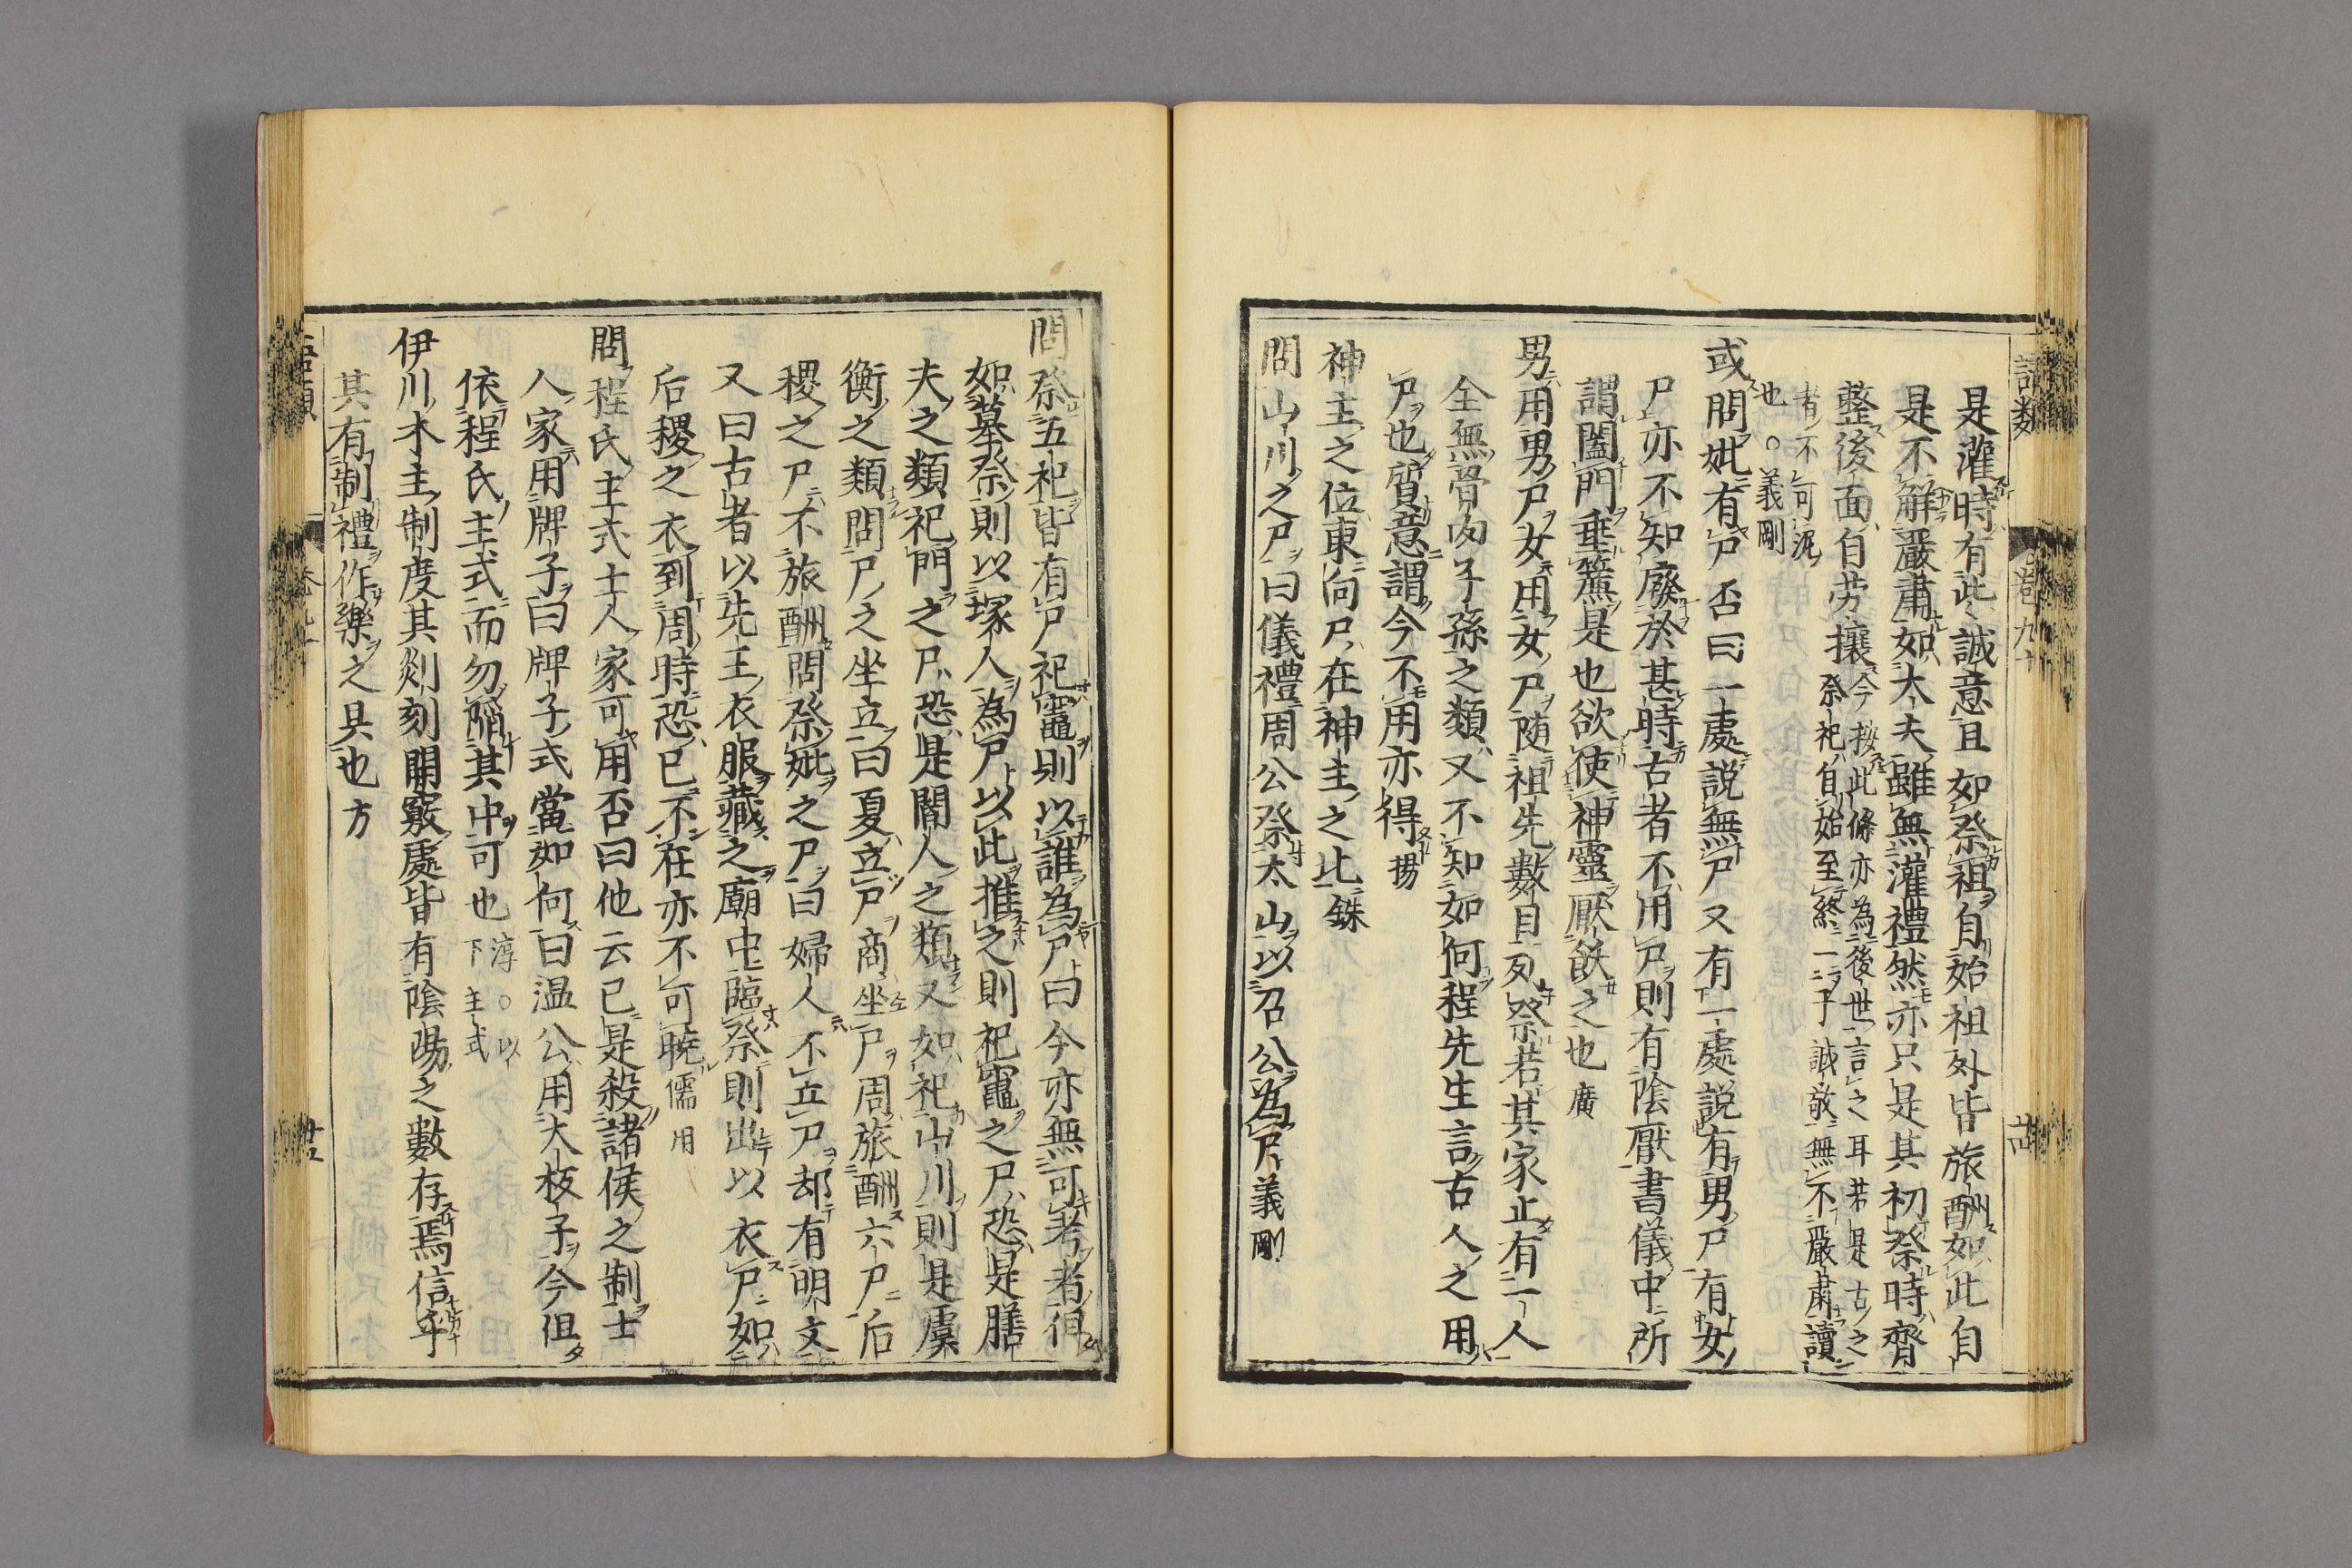 語類
卷九十
是灌時有此誠意且如祭祖自始祖外皆旅酬如此自
是不解嚴肅如大夫雖無灌禮然亦只是其初祭時齊
整後面自勞攘今按此條亦為後世言之耳若是古之
祭祀自始至終一于誠敬無不嚴肅讀
者不可泥
也〇義剛
或問妣有尸否曰一處説無尸又有一處説有男尸有女
尸亦不知廢於甚時古者不用尸則有陰厭書儀中所
謂闔門垂簾是也欲使神靈厭飫之也 廣
男用男尸女用女尸随祖先數目列祭若其家止有一人
全無骨肉子孫之類又不知如何程先生言古人之用
尸也質意謂今不用亦得 揚
神主之位東向尸在神主之北 銖
問山川之尸曰儀禮周公祭太山以召公為尸 義剛
問祭五祀皆有尸祀竈則以誰為尸曰今亦無可考者但
如墓祭則以塚人為尸以此推之則祀竈之尸恐是膳
夫之類祀門之尸恐是閽人之類又如祀山川則是虞
衡之類問尸之坐立曰夏立尸商坐尸周旅酬六尸后
稷之尸不旅酬問祭妣之尸曰婦人不立尸却有明文
又曰古者以先王衣服藏之廟中臨祭則出以衣尸如
后稷之衣到周時恐已不在亦不可曉 儒用
問程氏主式士人家可用否曰他云已是殺諸侯之制士
人家用牌子曰牌子式當如何曰温公用大板子今但
依程氏主式而勿陷其中可也 淳〇以
下主式
伊川木主制度其剡刻開竅處皆有陰陽之數存焉信乎
其有制禮作樂之具也 方
語類
卷九十